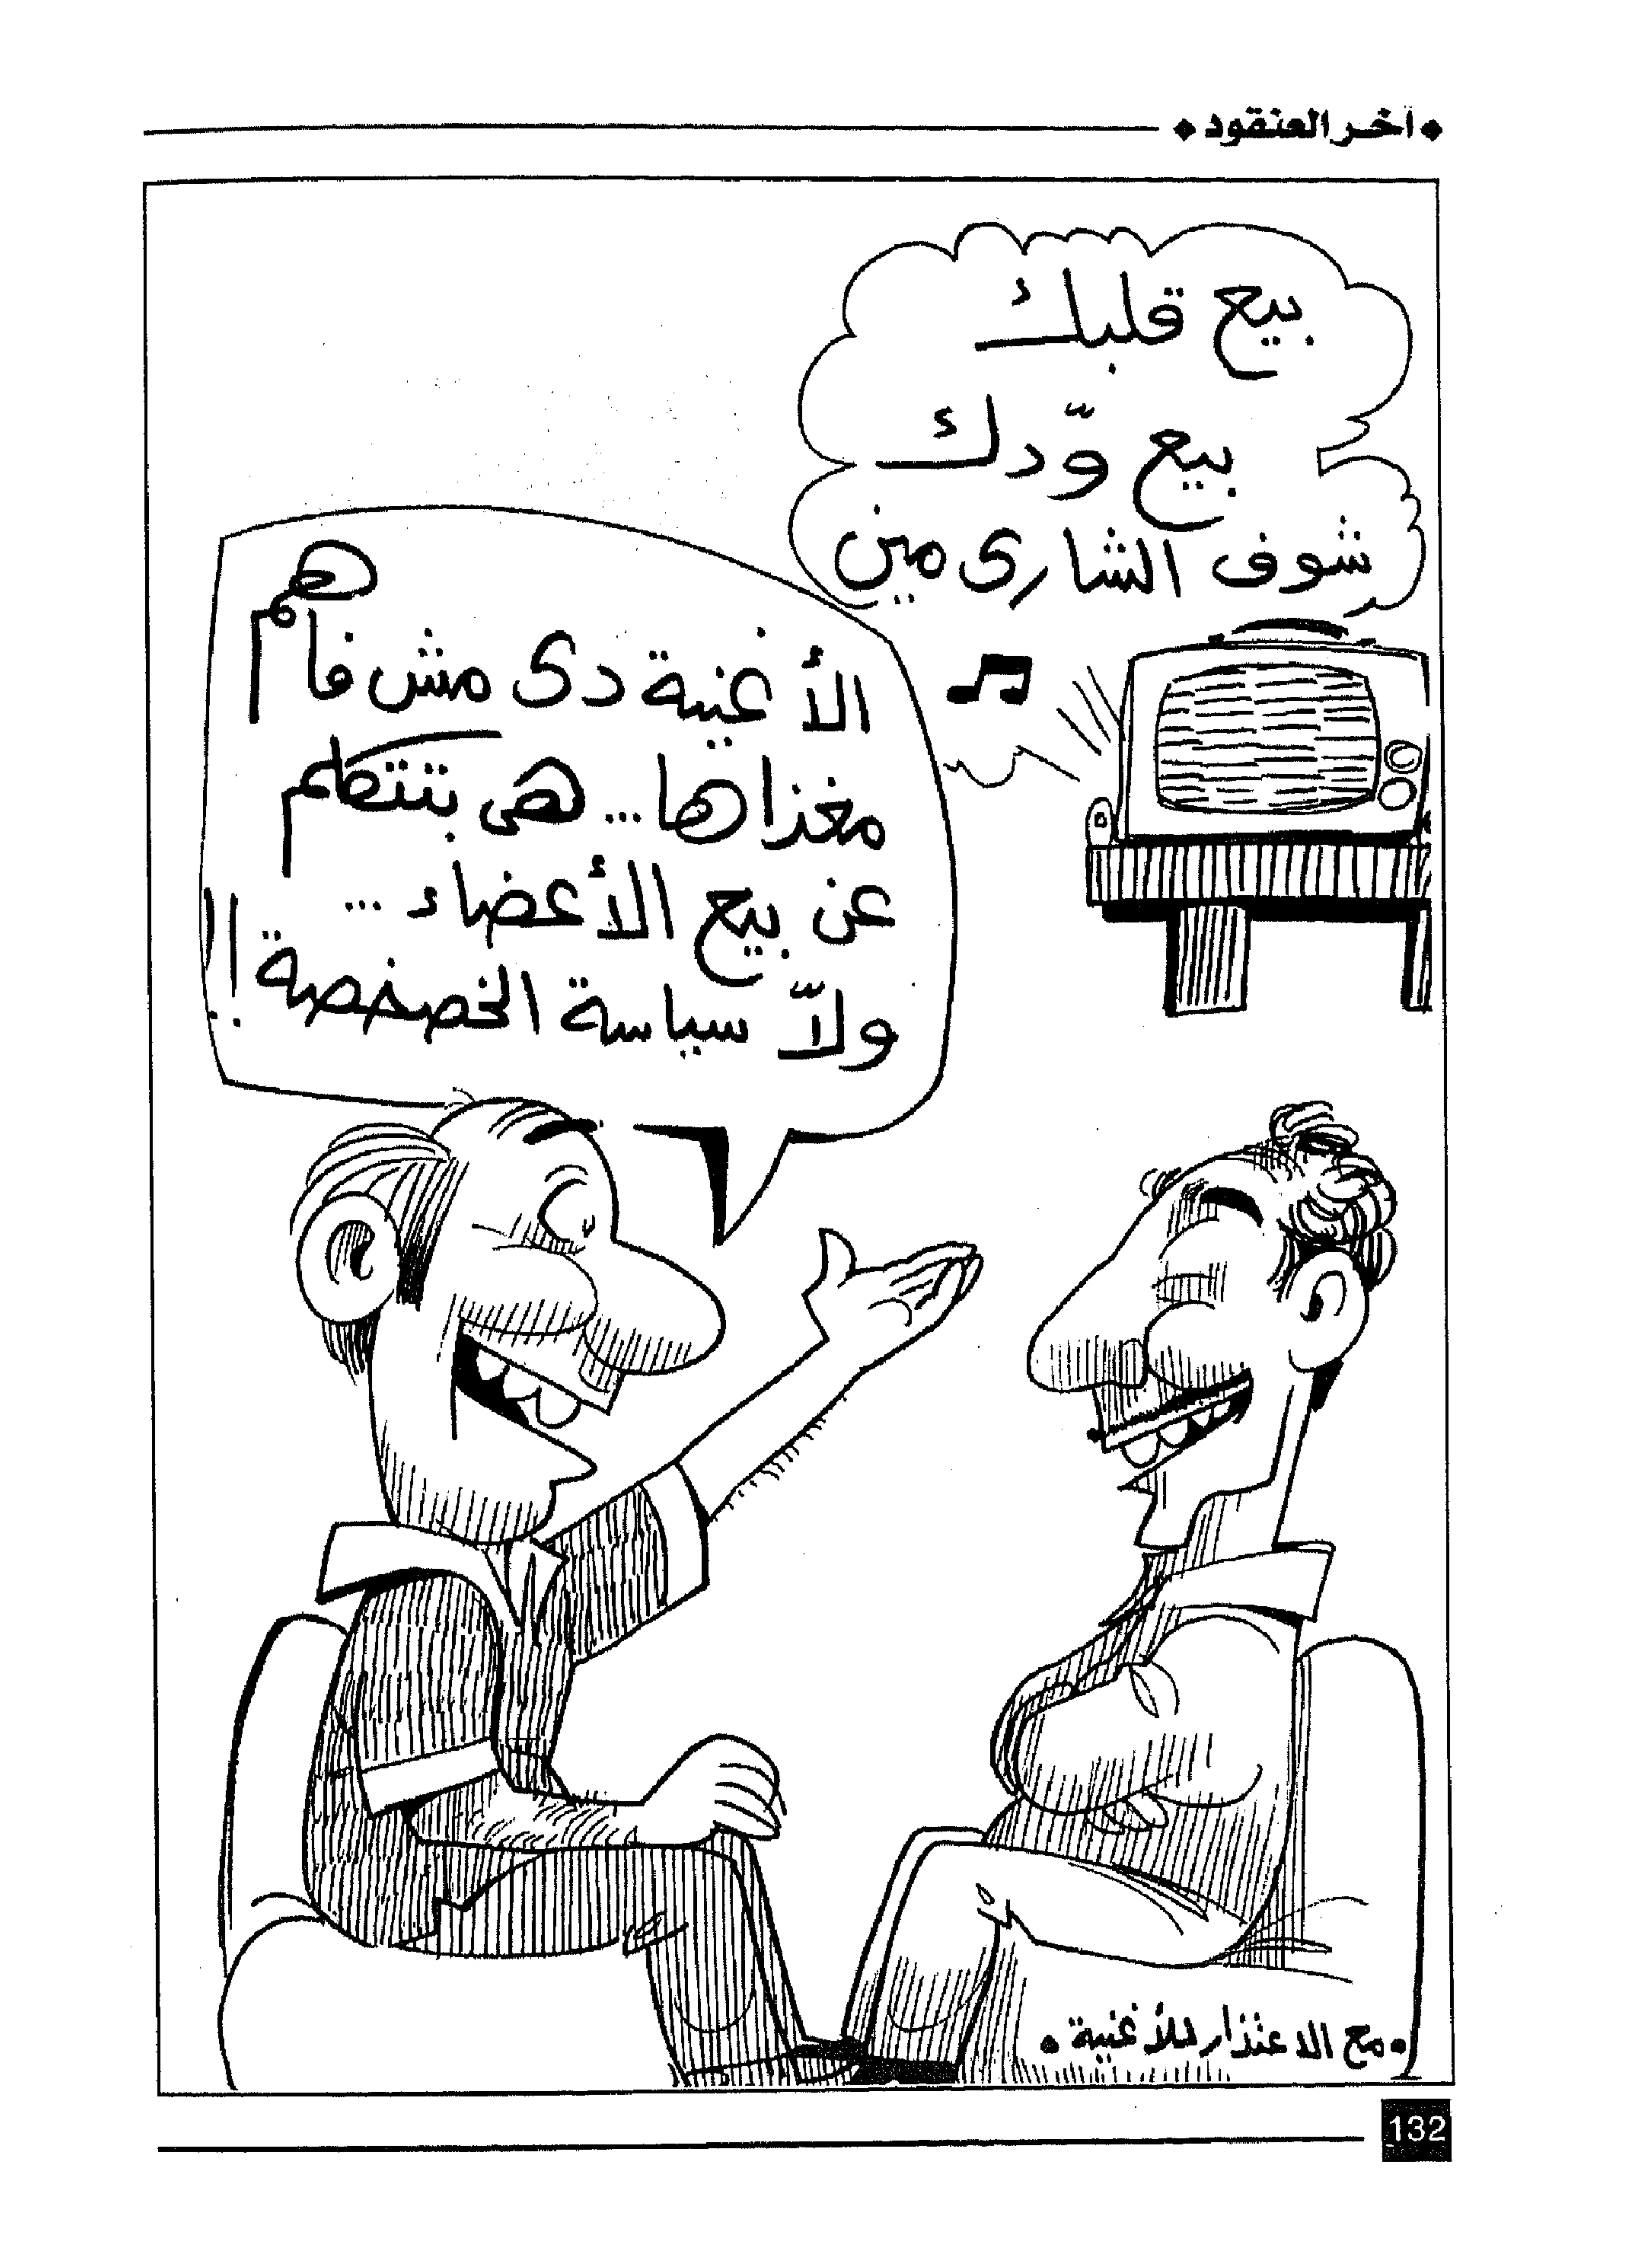 آخر العنقود
بيع قلبك
بيع ودّك
شوف الشارى مين
الأغنية دى مش فاهم
مغزاها... هى بتتكلم
عن بيع الأعضاء...
ولاّ سياسة الخصخصة!!
• مع الاعتذار للأغنية •
132